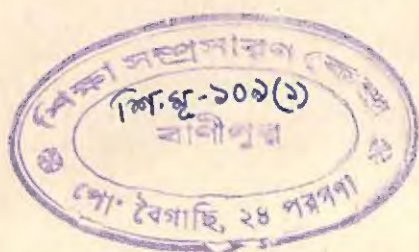 শিক্ষা সম্প্রসারণ কেন্দ্র
শি.মূ-১০৯(১)
বাণীপুর
পো· বৈগাছি, ২৪ পরগণা